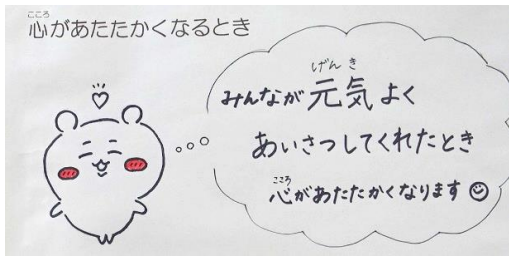 心があたたかくなるとき
みんなが元気よく
あいさつしてくれたとき
心があたたかくなります